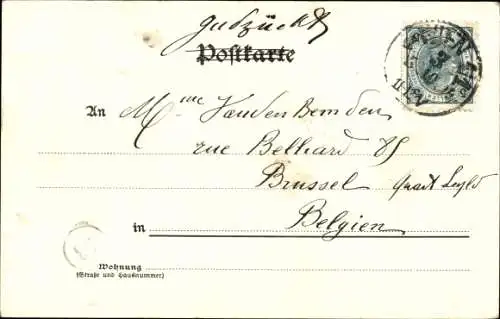 Postkarte
An Mme Vandenbemden
rue Belliard 85
Brussel quart Leopld
in Belgien
Wohnung
(Straße und Hausnummer)